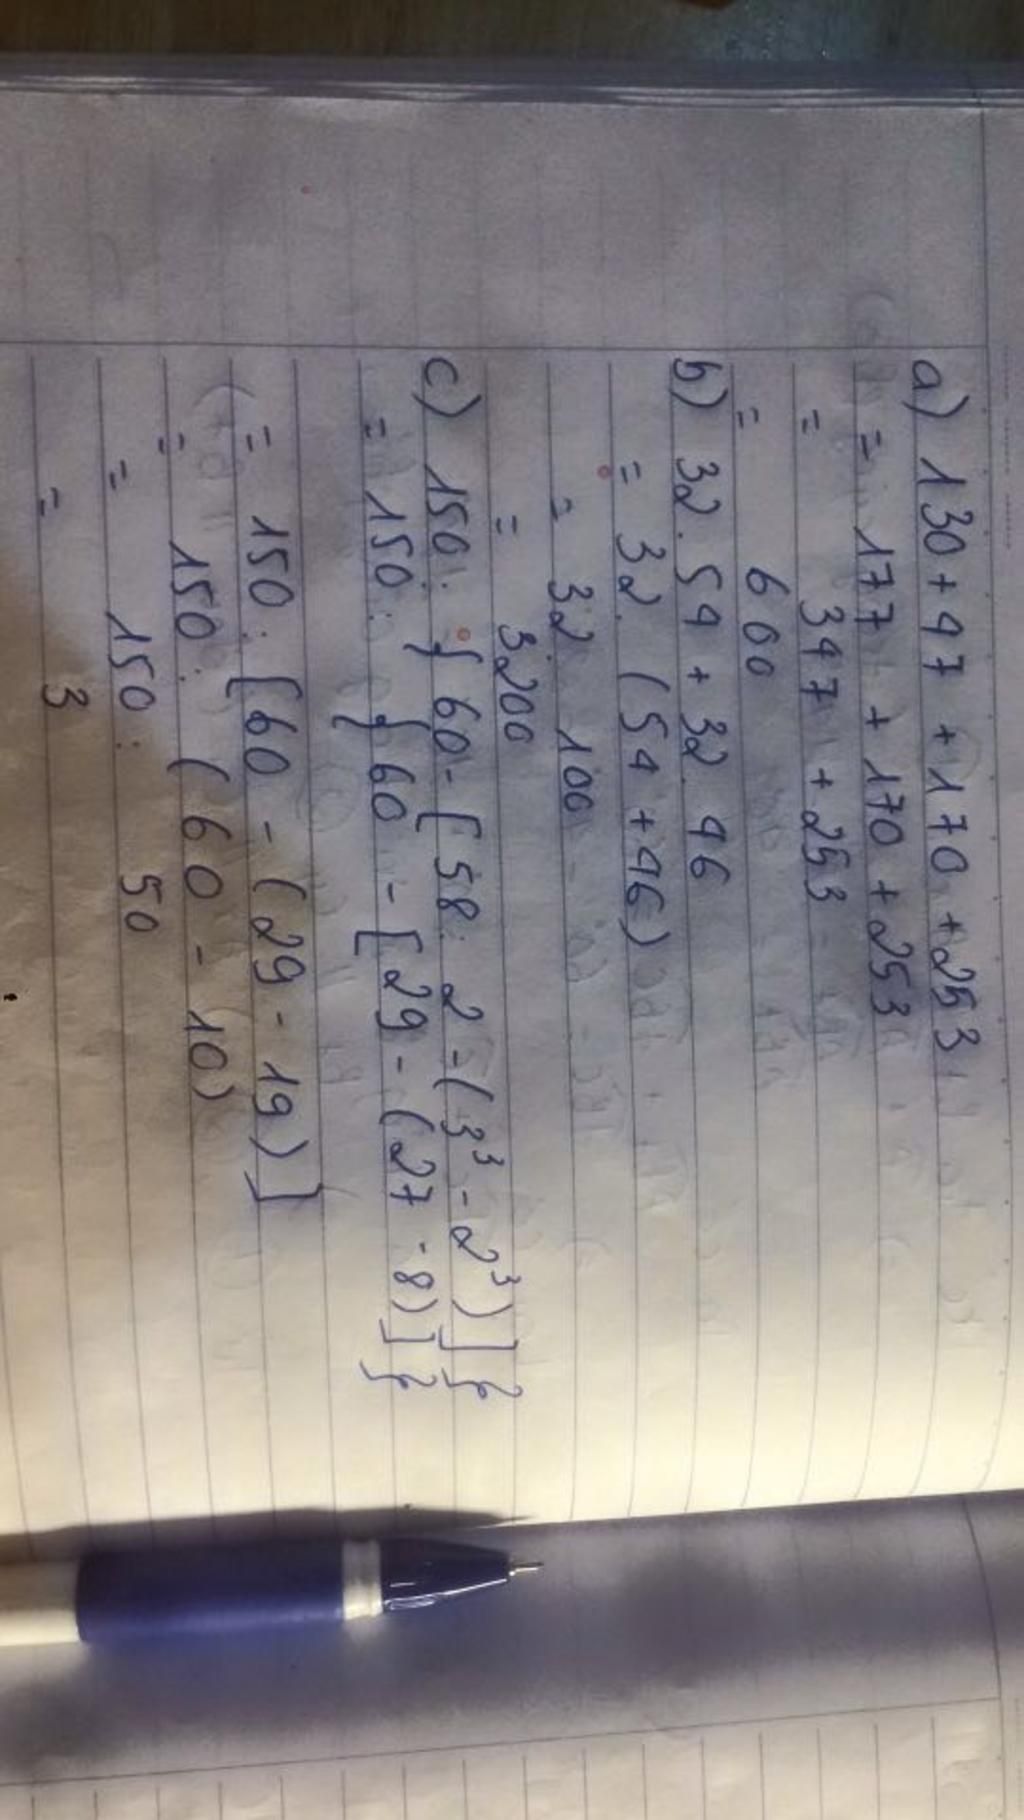 a) 130 + 47 + 170 + 253
= 177 + 170 + 253
= 347 + 253
= 600
b) 32. 54 + 32. 46
= 32. (54 + 46)
= 32. 100
= 3200
c) 150 : { 60 - [ 58 : 2 - ( 3³ - 2³ ) ] }
= 150 : { 60 - [ 29 - ( 27 - 8 ) ] }
= 150 : [ 60 - ( 29 - 19 ) ]
= 150 : ( 60 - 10 )
= 150 : 50
= 3